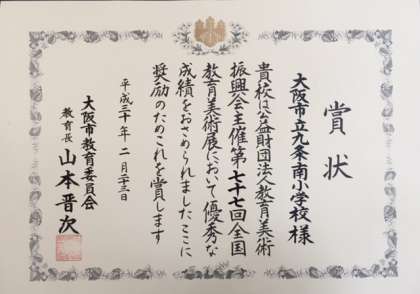 賞状
大阪市立九条南小学校 様
貴校は公益財団法人教育美術
振興会主催第七十七回全国
教育美術展において優秀な
成績をおさめられましたここに
奨励のためこれを賞します
平成三十年二月二十三日
大阪市教育委員会
教育長 山本晋次